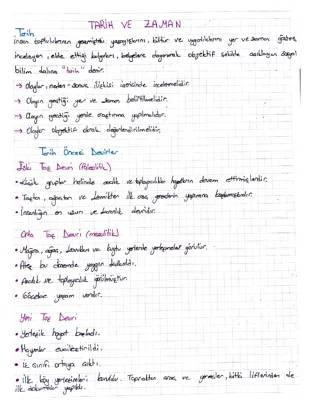 TARİH VE ZAMAN
Tarih
İnsan topluluklarının geçmişteki yaşayışlarını, kültür ve uygarlıklarını yer ve zaman göstererek
inceleyen, elde ettiği bulguları, belgelere dayanarak objektif şekilde açıklayan sosyal
bilim dalına "tarih" denir.
→ Olaylar, neden-sonuç ilişkisi içerisinde incelenmelidir.
→ Olayın geçtiği yer ve zaman belirtilmelidir.
→ Olayın geçtiği yerde araştırma yapılmalıdır.
→ Olaylar objektif olarak değerlendirilmelidir.
Tarih Öncesi Devirler
Eski Taş Devri (Paleolitik)
• Küçük gruplar halinde avcılık ve toplayıcılıkla hayatlarını devam ettirmişlerdir.
• Taştan, ağaçtan ve kemikten ilk araç gereçlerin yapımına başlanmıştır.
• İnsanlığın en uzun ve karanlık devridir.
Orta Taş Devri (mezolitik)
• Mağara, ağaç, ve yerlerde yerleşmeler görülür.
• Ateş bu dönemde yaygın kullanıldı.
• Avcılık ve toplayıcılık görülmüştür.
• Göçebe yaşam vardır.
Yeni Taş Devri
• Yerleşik hayat başladı.
• Hayvanlar evcilleştirildi.
• İlk sınıfı ortaya çıktı.
• İlk köy yerleşimleri kuruldu. Topraktan araç ve gereçler, bitki liflerinden de
ilk dokumalar yapıldı.